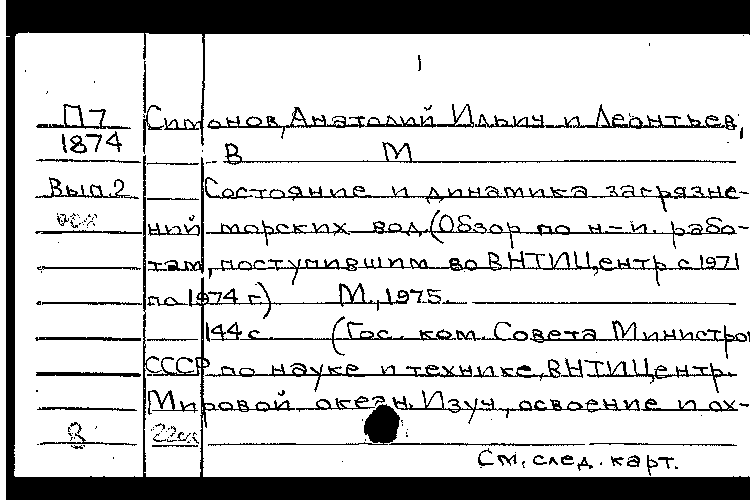 1
П7 Симонов, Анатолий Ильич и Леонтьев,
1874 В М
Вып.2 Состояние и динамика загрязне-
ний морских вод.(Обзор по н-и. рабо-
там, поступившим во ВНТИЦентр с 1971
по 1974 г.) М., 1975.
144 с. (Гос. ком. Совета Министров
СССР по науке и технике, ВНТИЦентр.
Мировой океан. Изуч., освоение и ох-
8
См. след. карт.